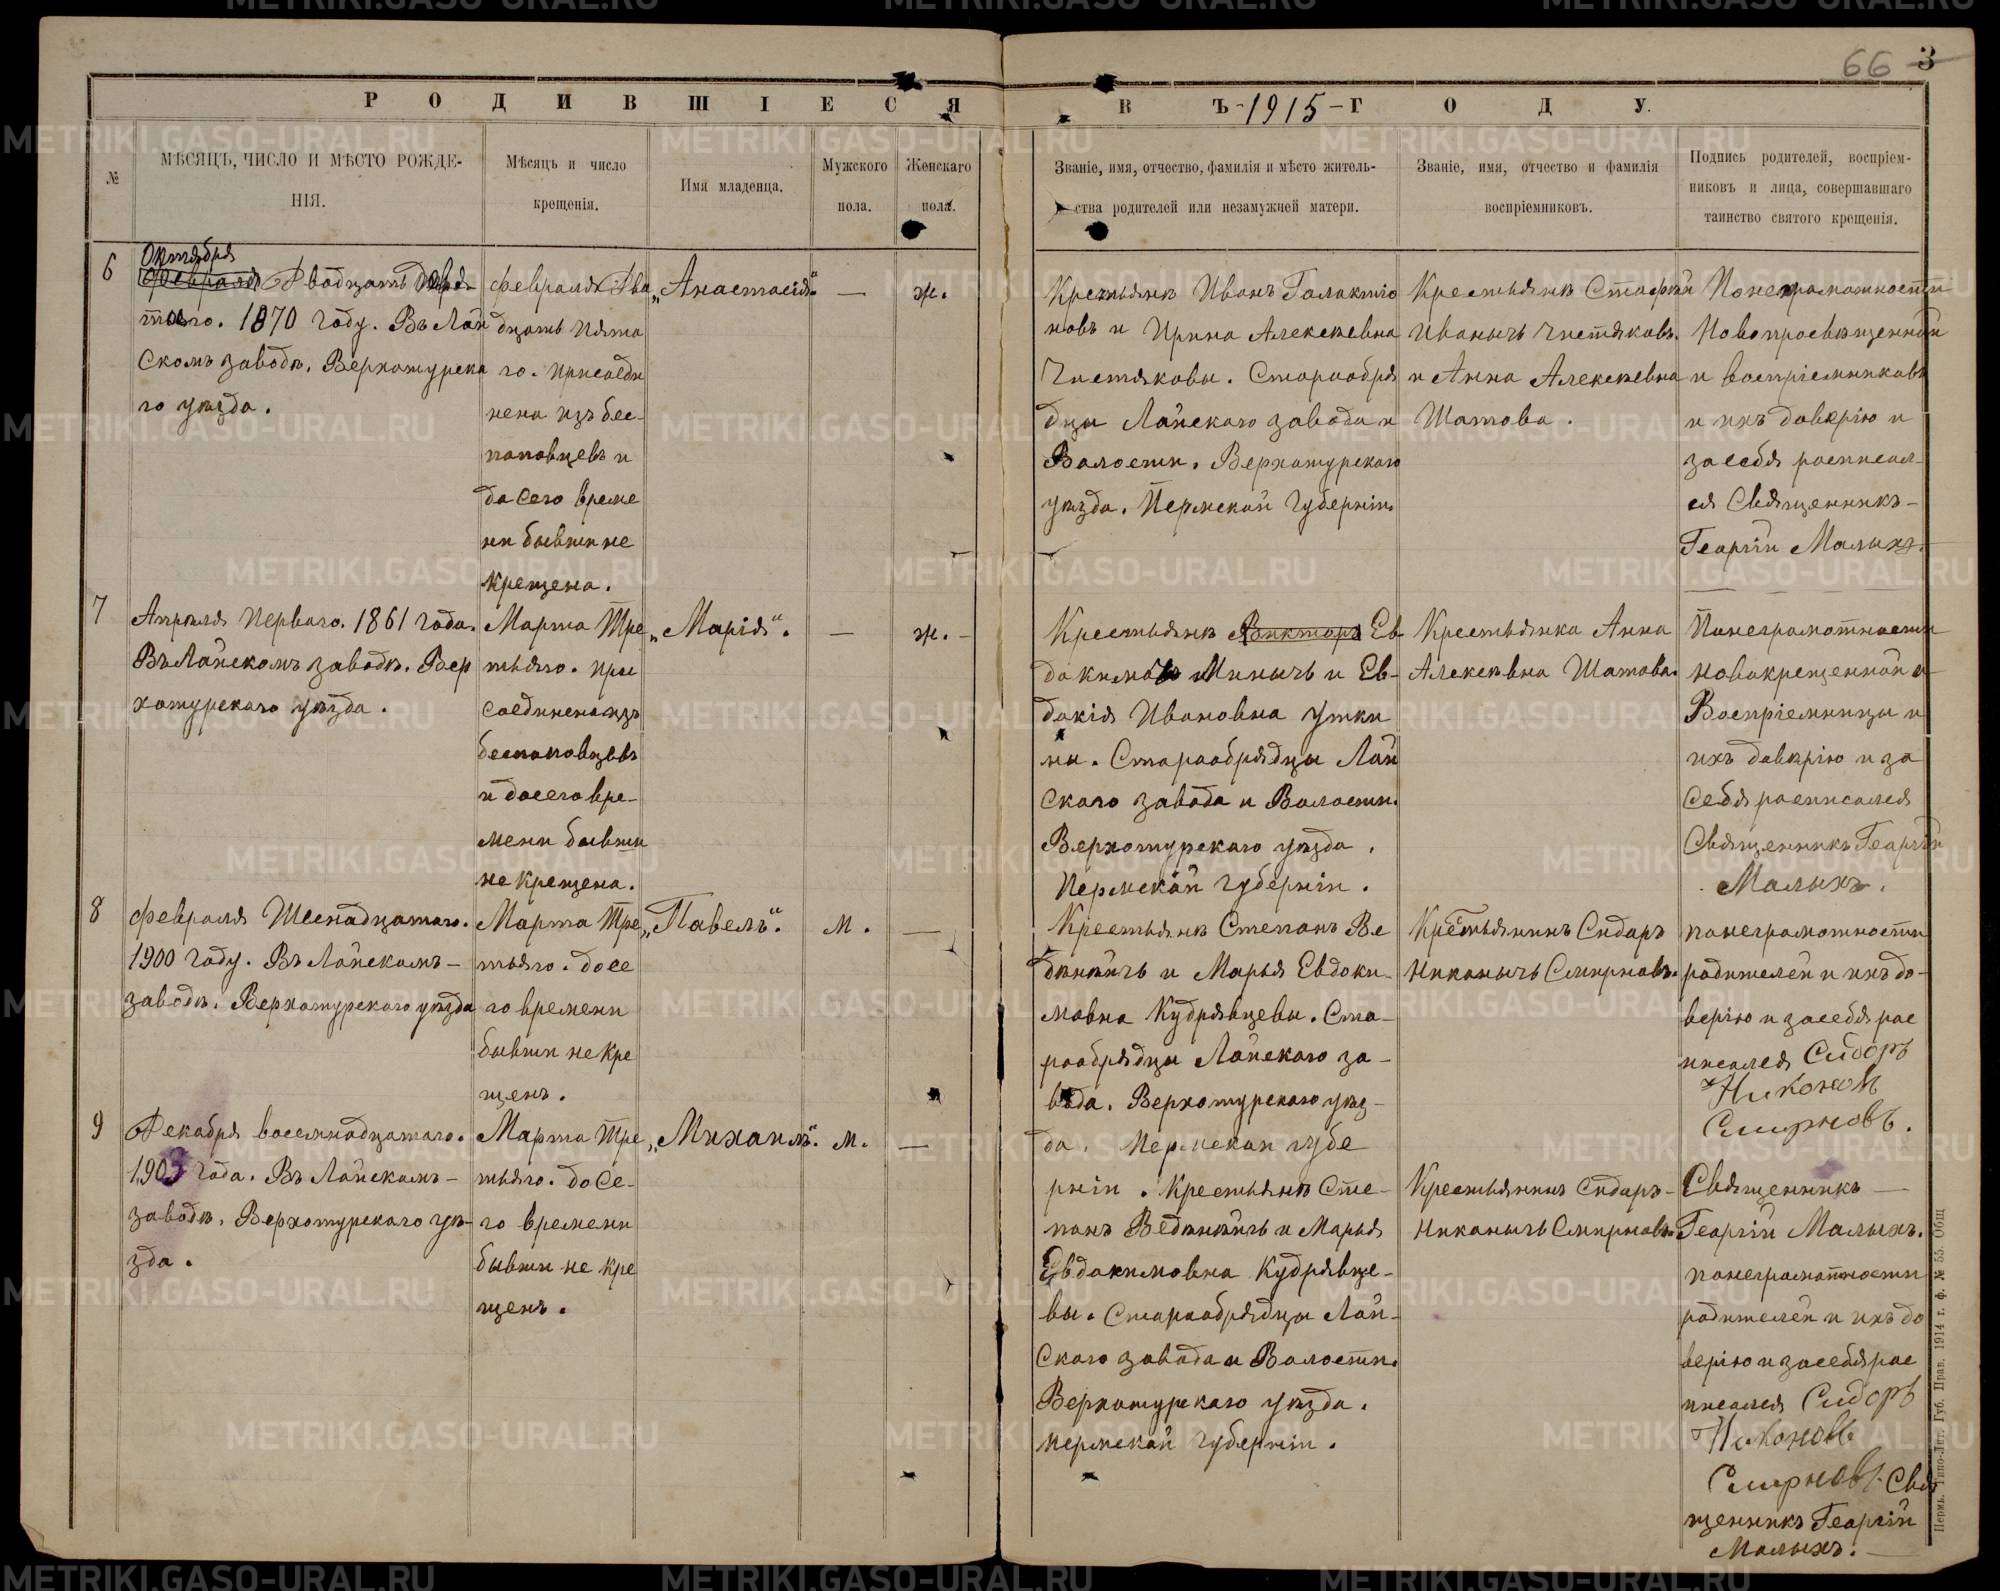 66 3
РОДИВШІЕСЯ
ВЪ 1915 ГОДУ.
№
МѢСЯЦЪ, ЧИСЛО И МѢСТО РОЖДЕ-
НІЯ.
Мѣсяцъ и число
крещенія.
Имя младенца.
Мужского
пола.
Женскаго
пола.
Званіе, имя, отчество, фамилія и мѣсто житель-
ства родителей или незамужней матери.
Званіе, имя, отчество и фамилія
воспріемниковъ.
Подпись родителей, воспріем-
никовъ и лица, совершавшаго
таинство святого крещенія.
6
Октября
Февраля Двадцать
1870 году. Въ Лай
скомъ заводѣ. Верхотурска
го уѣзда.
Февраля Два
дцать пята
го. присоеди
нена изъ бес-
поповцевъ и
до сего време
ни бывши не
крещена.
„Анастасія“.
—
ж.
Крестьянѣ Иванъ Галактіо
новъ и Ирина Алексѣевна
Чистяковы. Старообря
дцы Лайскаго завода и
Волости. Верхотурскаго
уѣзда. Пермской Губерніи.
Иванычъ Чистяковъ.
и Анна Алексѣевна
Шатова.
По неграмотности
Новопросвѣщенной
и воспріемниковъ
и ихъ довѣрію и
за себя росписал-
ся Священникъ-
Георгій Малыхъ.
7
Апрѣля Перваго. 1861 года.
Въ Лайскомъ заводѣ. Вер
хотурскаго уѣзда.
Марта Тре
тьяго. при
соединена изъ
беспоповцевъ
и до сего вре-
мени бывши
не крещена.
„Марія“.
—
ж. -
Крестьянѣ Викторъ Ев
докимъ Минычъ и Ев-
докія Ивановна Утки
ны. Старообрядцы Лай
скаго завода и Волости.
Верхотурскаго уѣзда.
Пермской Губерніи.
Крестьянка Анна
Алексѣвна Шатова.
По неграмотности
новокрещенной и
Воспріемницы и
ихъ довѣрію и за
себя росписался
Священникъ Георгій
Малыхъ.
8
Февраля Шестнадцатаго.
1900 году. Въ Лайскомъ-
заводѣ. Верхотурскаго уѣзда
Марта Тре
тьяго. до се
го времени
бывши не кре
щенъ.
„Павелъ“.
м.
—
Крестьянѣ Степанъ Ве
и Марья Евдоки-
мовна Кудрявцевы. Ста-
рообрядцы Лайскаго за-
вода. Верхотурскаго уѣз-
да. Пермской губе
рніи.
Крестьянинъ Сидаръ
Никонычъ Смирновъ.
по неграмотности
родителей и ихъ до-
верію и за себя рос
писался Сидоръ
Никоновъ
Смирновъ.
Священникъ
Георгій Малыхъ.
9
Декабря восемнадцатаго.
1903 года. Въ Лайскомъ-
заводѣ. Верхотурскаго уѣ-
зда.
Марта Тре
тьяго. до се-
го времени
бывши не кре
щенъ.
„Михаилъ“.
м.
—
Крестьянѣ Сте-
панъ и Марья
Евдокимовна Кудрявце-
вы. Старообрядцы Лай-
скаго завода и Волости.
Верхотурскаго уѣзда.
пермской Губерніи.
Крестьянинъ Сидаръ-
Никонычъ Смирновъ.
по неграмотности
родителей и ихъ до
верію и за себя рос
писался Сидоръ
Никоновъ
Смирновъ. Свя
щенникъ Георгій
Малыхъ.
Пермь. Типо-Лит. Губ. Прав. 1914 г. ф. № 55. Общ
METRIKI.GASO-URAL.RU